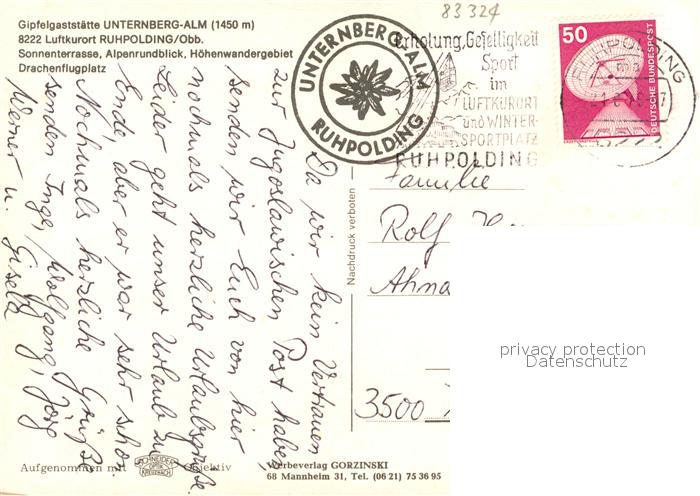 83 324
Gipfelgaststätte UNTERNBERG-ALM (1450 m)
8222 Luftkurort RUHPOLDING/Obb.
Sonnenterrasse, Alpenrundblick, Höhenwandergebiet
Drachenflugplatz
UNTERNBERG-ALM
RUHPOLDING
Erholung, Geselligkeit
Sport
im
LUFTKURORT
und WINTER-
SPORTPLATZ
RUHPOLDING
50
DEUTSCHE BUNDESPOST
RUHPOLDING
Da wir kein Vertrauen
zur Jugoslawischen Post haben,
senden wir Euch von hier
nochmals herzliche Urlaubsgrüße.
Leider geht unser Urlaub zu
Ende, aber er war sehr schön.
Nochmals herzliche Grüße
senden Inge, Wolfgang, Jörg
Werner u. Gisela
Nachdruck verboten
Familie
Rolf
Ahna
3500
privacy protection
Datenschutz
Aufgenommen mit SCHNEIDER OPTIK KREUZNACH Objektiv
Werbeverlag GORZINSKI
68 Mannheim 31, Tel. (06 21) 75 36 95